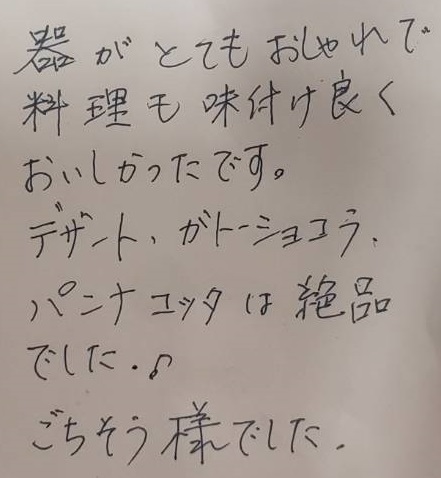 器がとてもおしゃれで
料理も味付け良く
おいしかったです。
デザート、ガトーショコラ、
パンナコッタは絶品
でした.♪
ごちそう様でした.